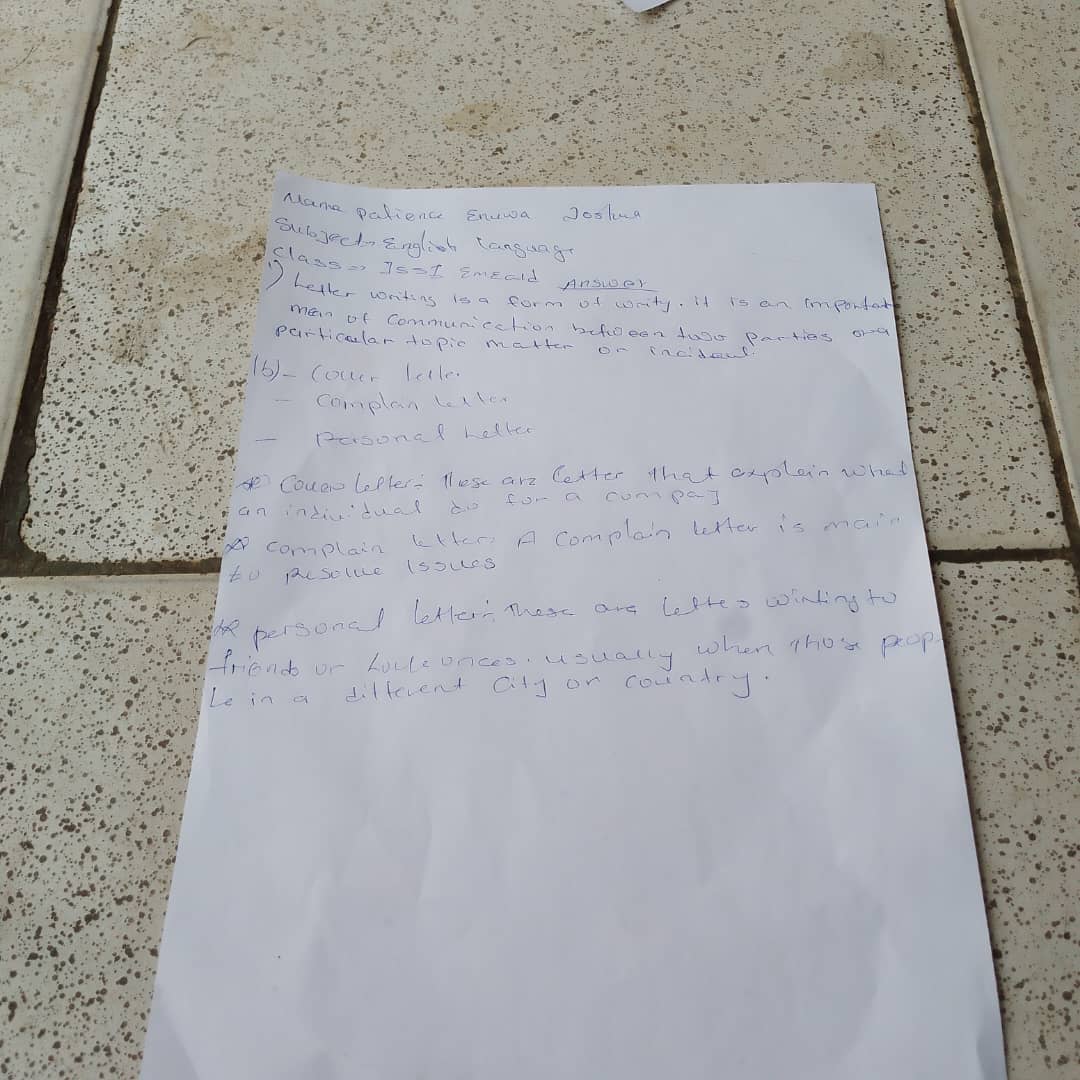 Name Patience Enuwa Joshua
Subject> English language
Class => JSSI Emeald Answer
1) Letter writing is a form of writy. it is an importat
mean of communication between two parties on a
particular topic matter or incident
1b) - Cover letter
- Complan letter
- Personal Letter
Cover letter: these are letter that explain what
an individual do for a compay
complain letter: A complain letter is main
to resolve issues
personal letter: these are lettes winting to
friends or usually when those peop-
le in a different city or country.